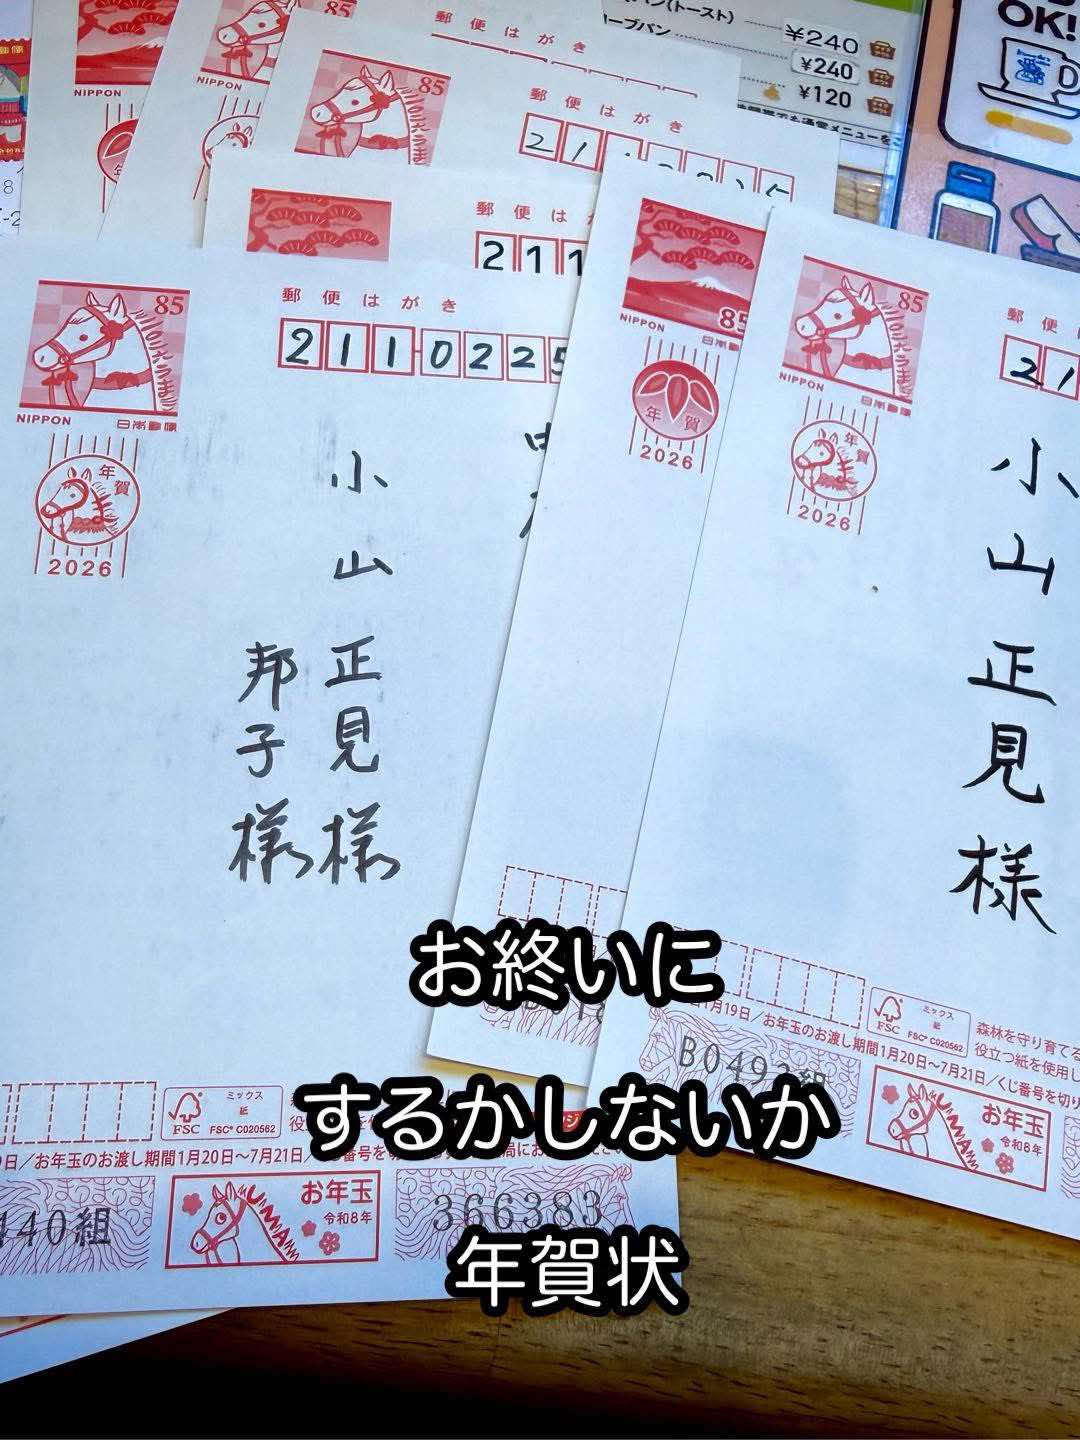 (トースト)
¥240
¥240
¥120
OK!
郵便はがき
85
NIPPON
郵便はがき
85
郵便はがき
年賀
郵便は
211
85
NIPPON
日本郵便
二〇二六うま
郵便はがき
2110225
年賀
2026
小山 正見様
邦子様
NIPPON
85
年賀
2026
85
NIPPON
日本郵便
二〇二六うま
年賀
2026
郵便
21
小山 正見様
お終いに
するかしないか
年賀状
1月19日/お年玉のお渡し期間1月20日〜7月21日/くじ番号を切り
FSC
ミックス
紙
FSC® C020562
森林を守り育てる
役立つ紙を使用し
B0493組
お年玉
令和8年
FSC
ミックス
紙
FSC® C020562
9日/お年玉のお渡し期間1月20日〜7月21日/
140組
お年玉
令和8年
366383